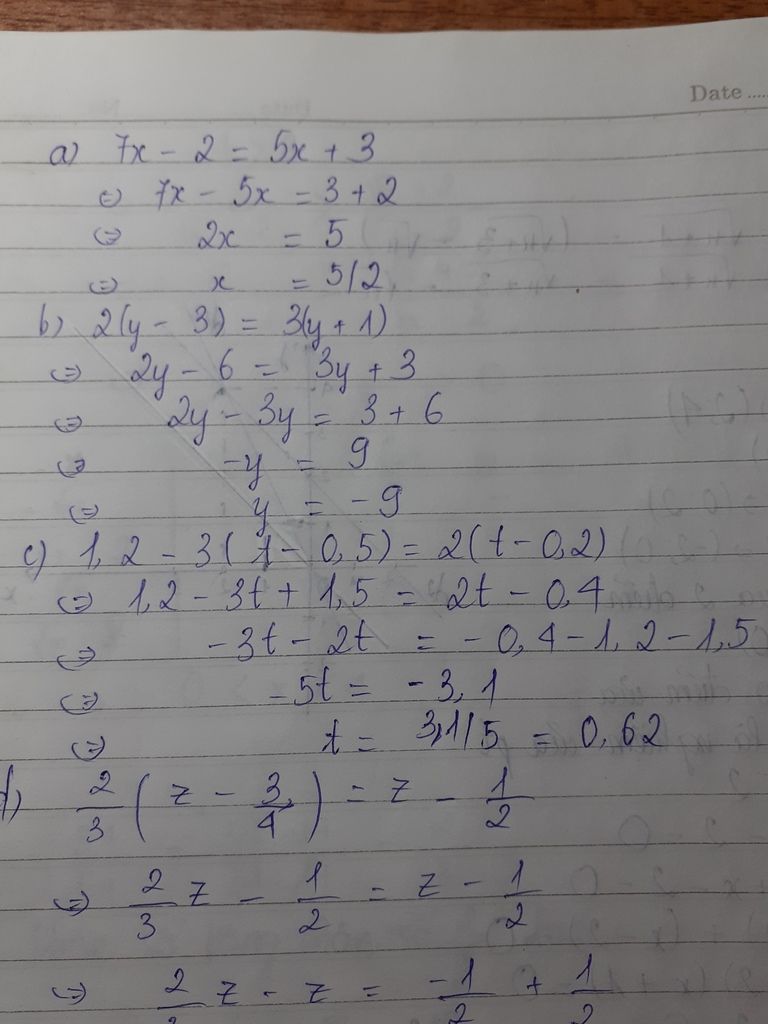 Date .....
a) 7x - 2 = 5x + 3
⇔ 7x - 5x = 3 + 2
⇔ 2x = 5
⇔ x = 5/2
b) 2(y - 3) = 3(y + 1)
⇔ 2y - 6 = 3y + 3
⇔ 2y - 3y = 3 + 6
⇔ -y = 9
⇔ y = -9
c) 1,2 - 3(t - 0,5) = 2(t - 0,2)
⇔ 1,2 - 3t + 1,5 = 2t - 0,4
⇔ -3t - 2t = -0,4 - 1,2 - 1,5
⇔ -5t = -3,1
⇔ t = 3,1/5 = 0,62
d) 2/3 (z - 3/4) = z - 1/2
⇔ 2/3 z - 1/2 = z - 1/2
⇔ 2/3 z - z = -1/2 + 1/2